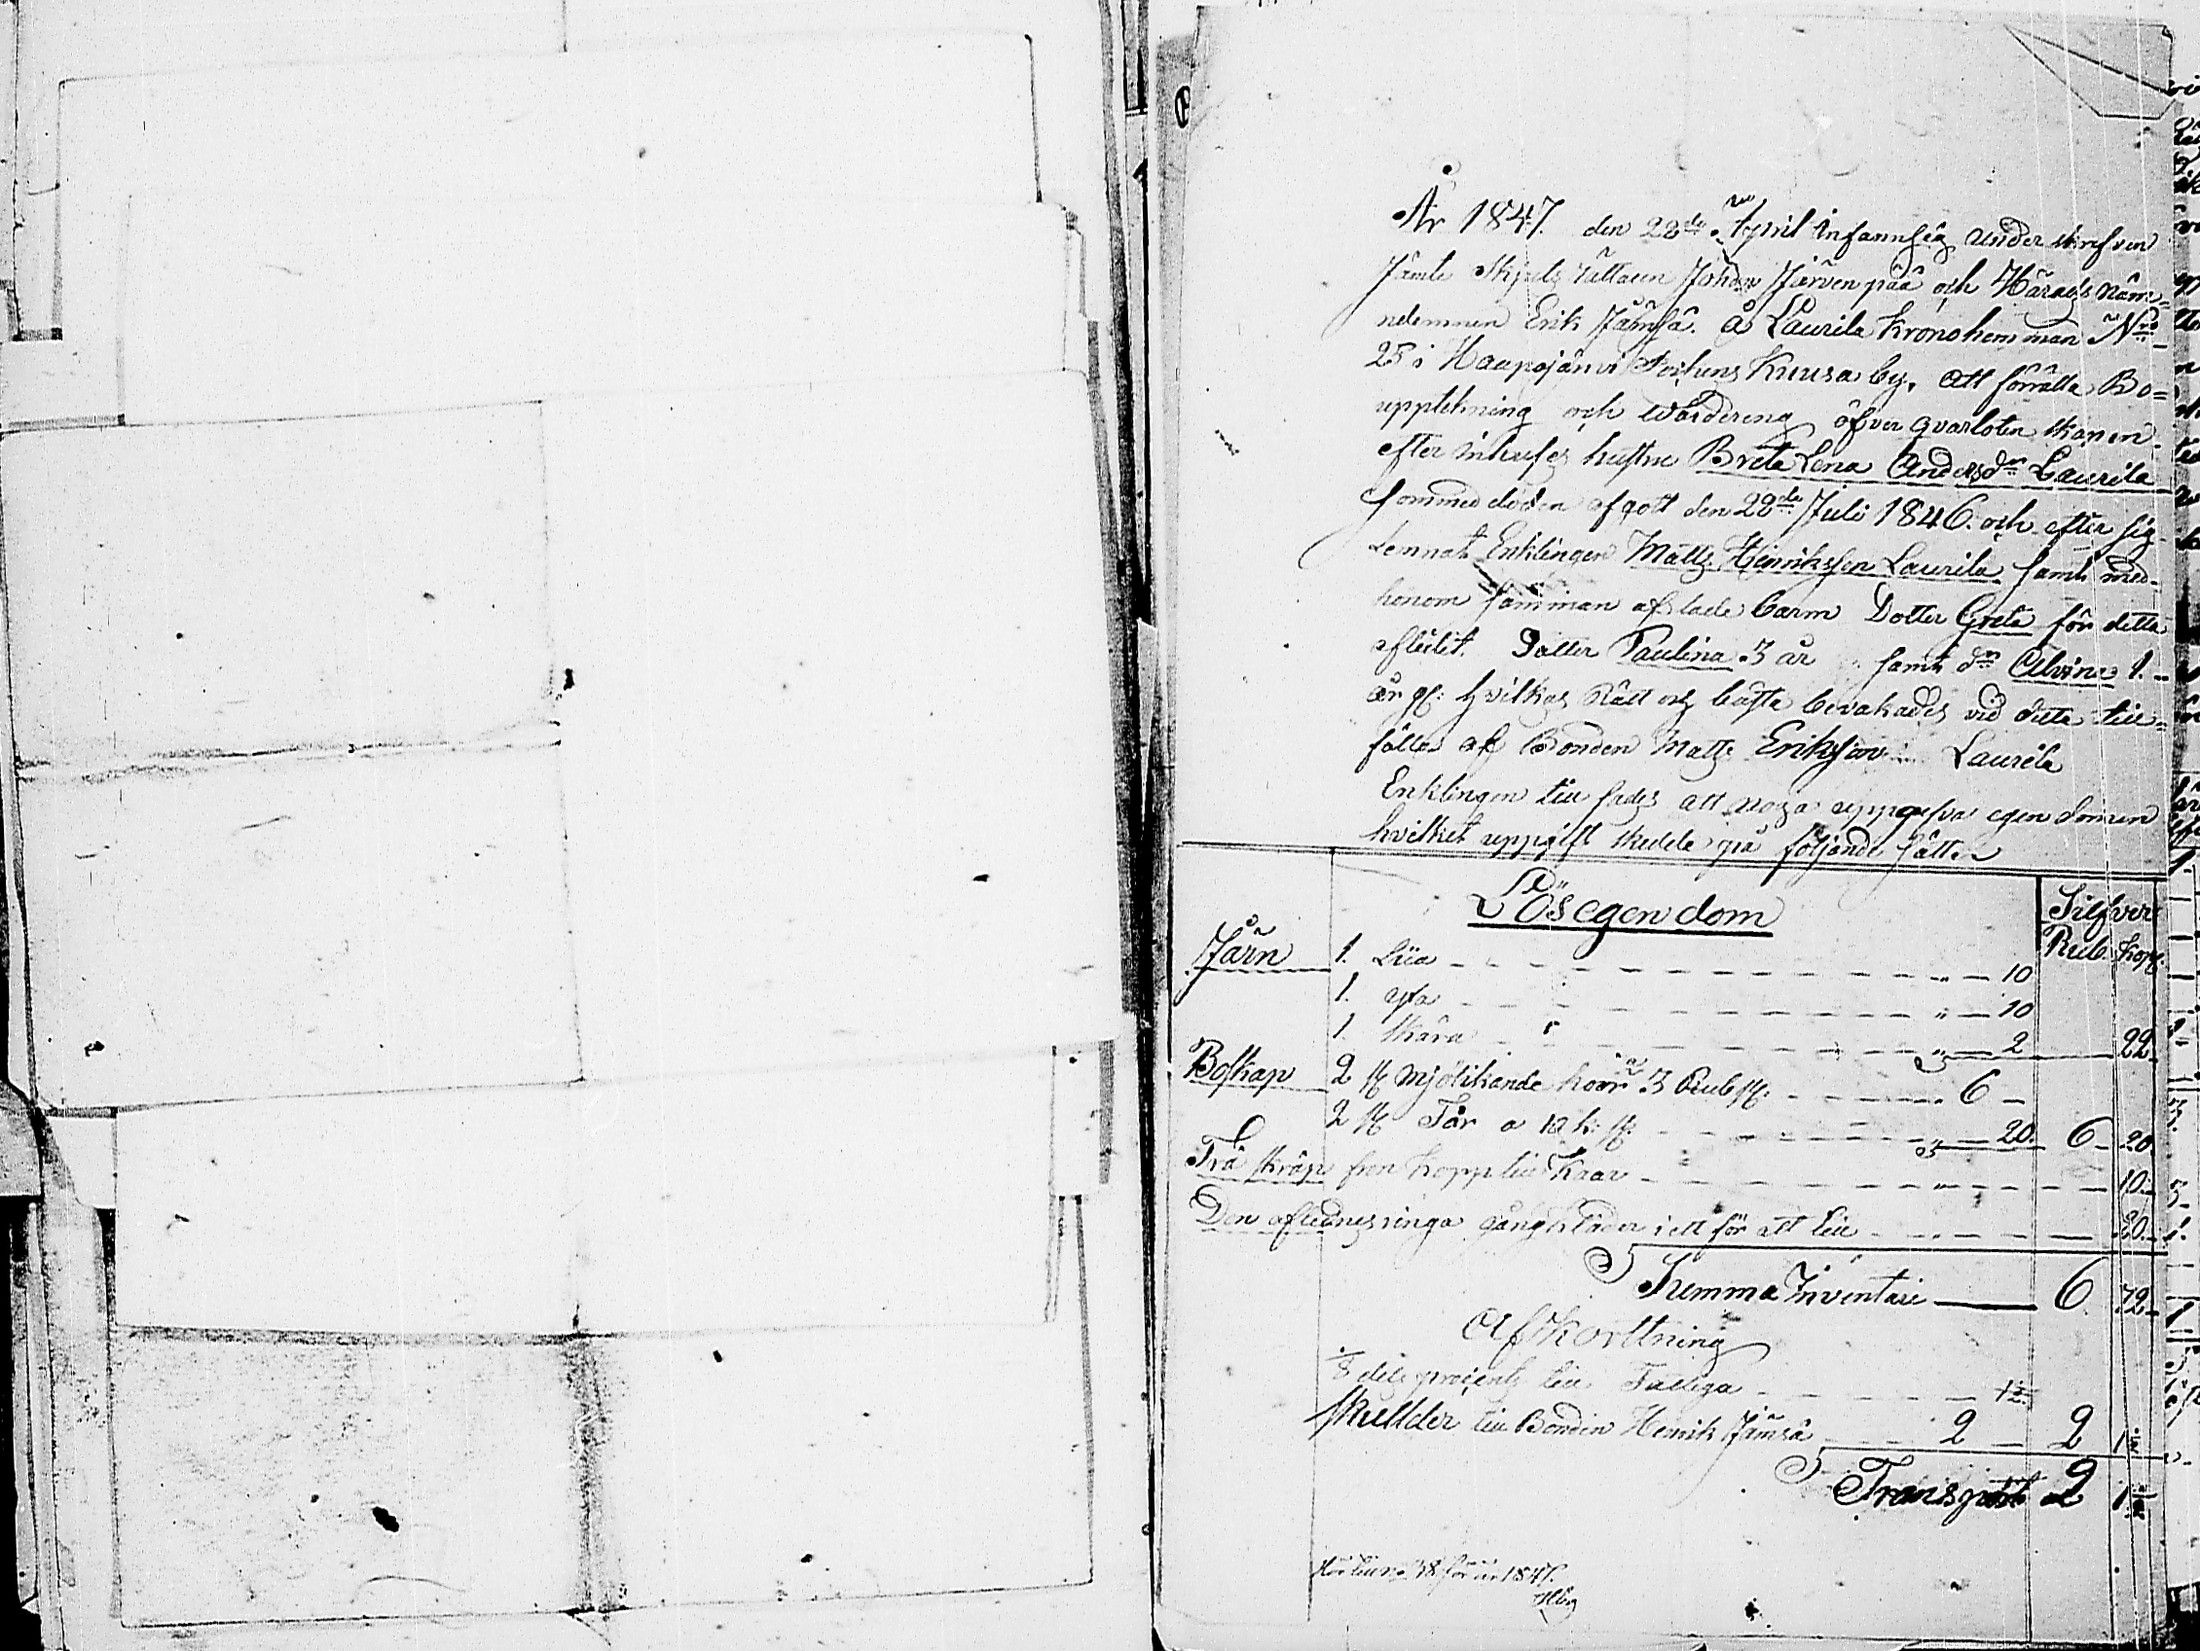 År 1847. den 22de April infann sig under skrefven
Jämte Skjuts Rättaren Johan Järvenpää och Härads näm=
ndemnen Erik Jämsä. å Laurila kronohemman Nro
25 i Haapajärvi Sockens Kuusa by, att förrätta Bo=
uppteckning och wärdering öfver qvarlåtenskapen
efter inhuses hustru Breta Lena Andersdr Laurila
som med döden afgått den 22de Juli 1846. och efter sig
Lemnat Enklingen Matts Henriksson Laurila samt med
honom samman aflade barn Dotter Greta för detta
aflidit. Dotter Paulina 3 år samt dr Alvina 1.
år gl: hvilkas rätt och bästa bevakades vid detta till=
fälle af Bonden Matts Eriksson Laurila
Enklingen till sades att noga uppgifva egendomen
hvilket uppgift skedde på följande sätt
Lösegendom Silfver
Rub. kop.
Järn 1. Lia 10
1. yxa 10
1. Skära 2 22
Boskap 2 st mjölkande koor a 3 Rub st. 6
2 st Får a 10 k: st. 20. 6 20
Trä skräp från kopp till Kaar 10
Den aflednes ringa gångkläder i ett för allt till 20
Summa Inventarie 6 72
Afkorttning
1/8 dels procent till Fattiga
Skullder till Bonden Henrik Jämsä 2 2 1
Transport 2 1